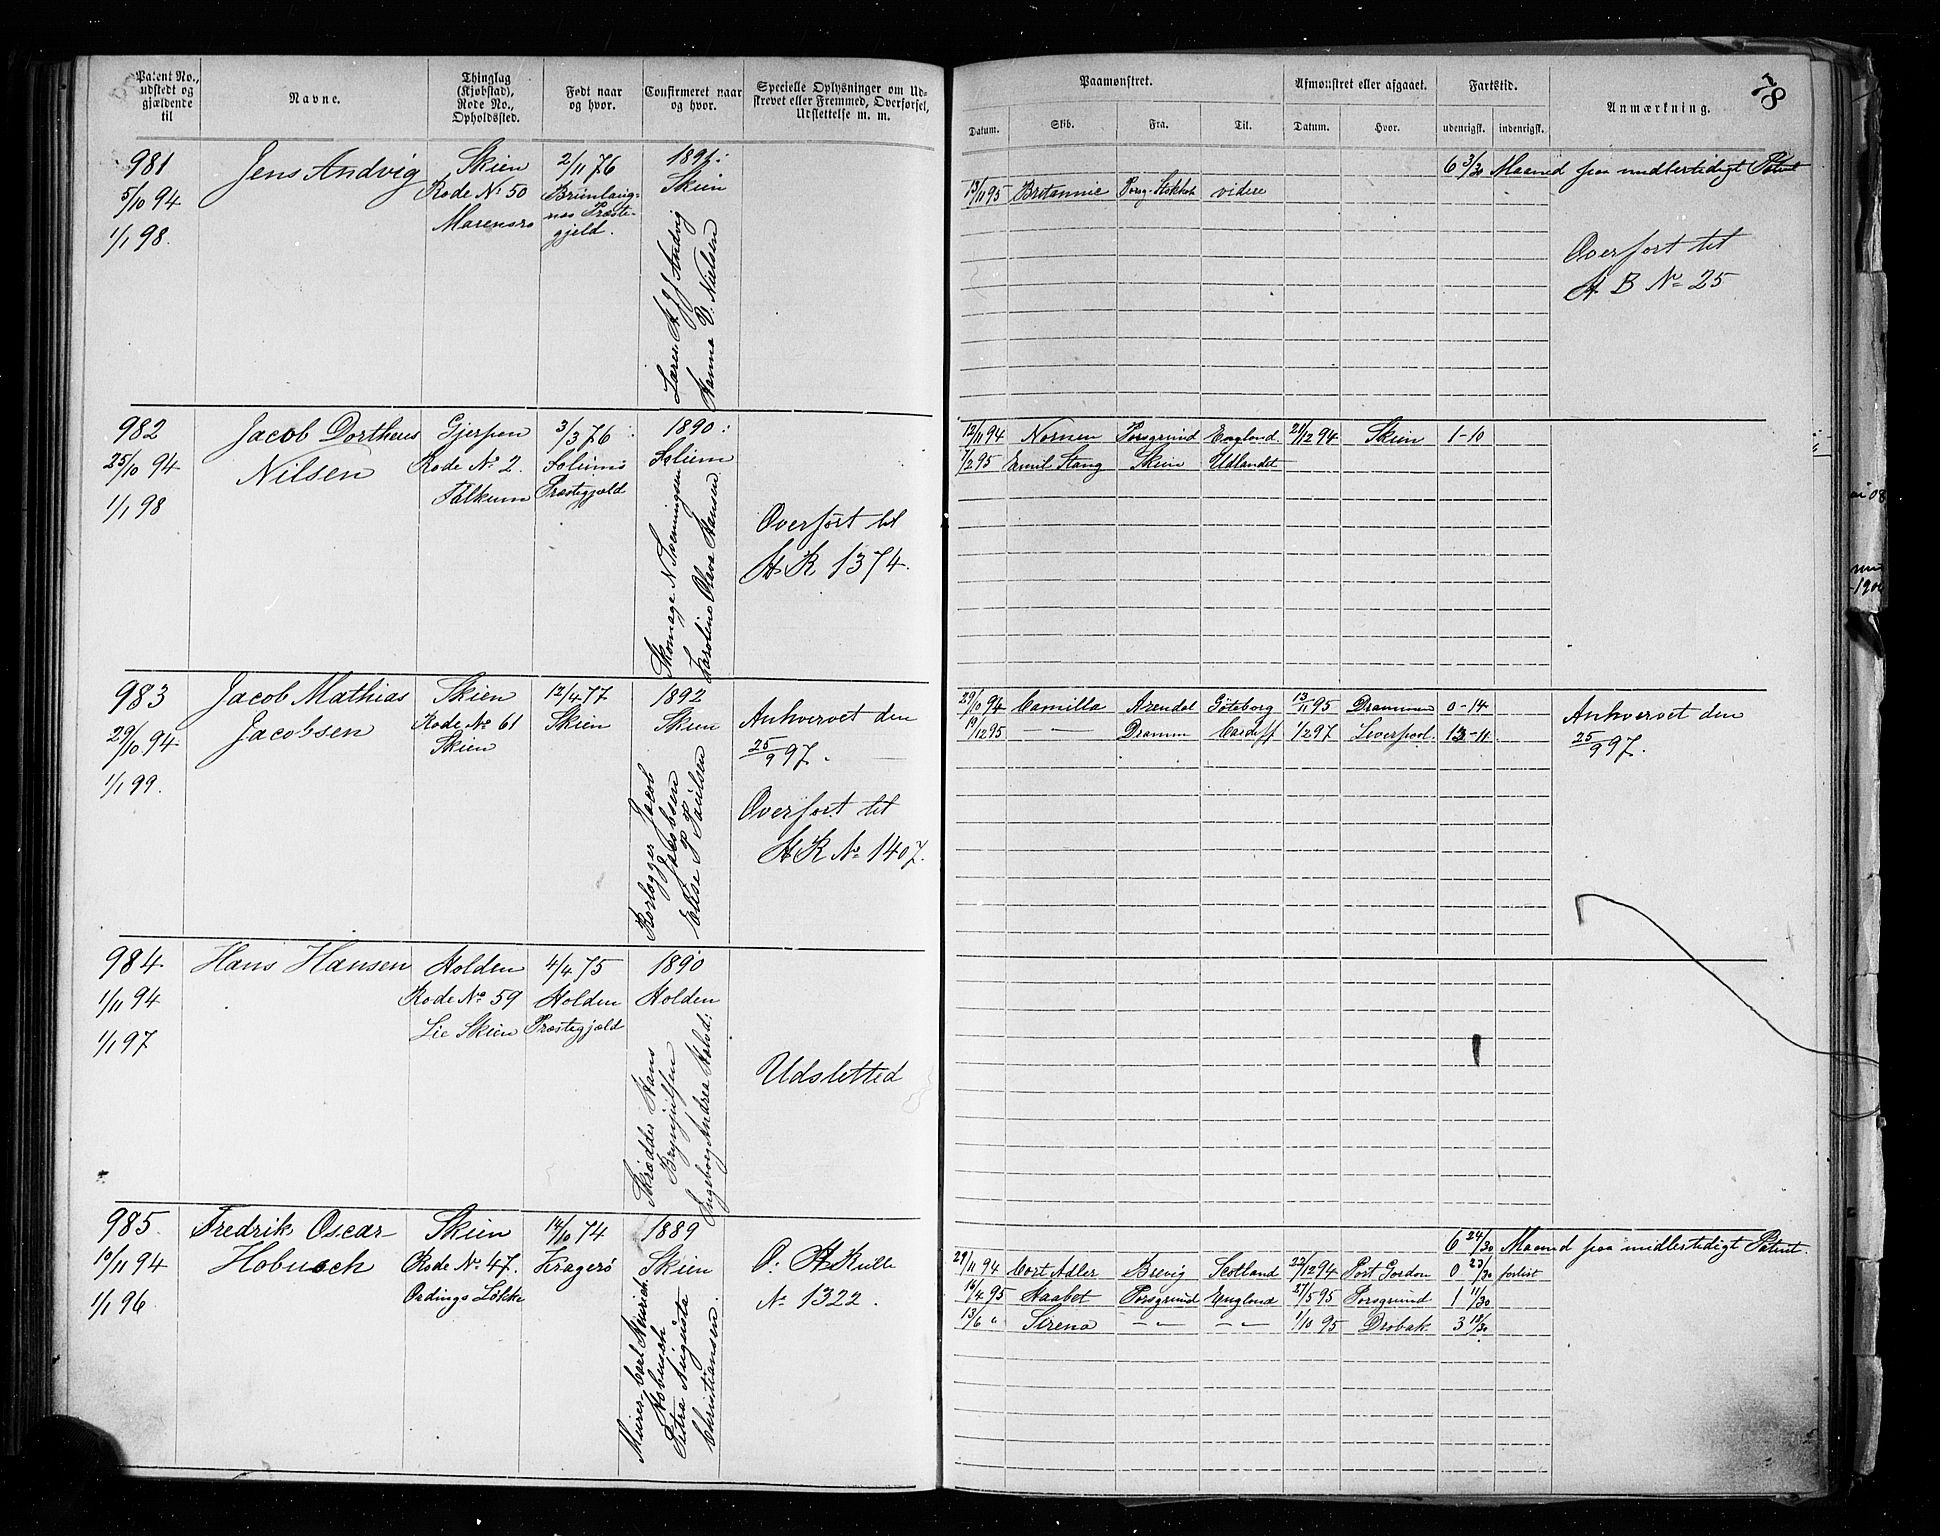 Patent No., udstedt og gjældende til
Navne.
Thinglag (Kjøbstad), Rode No., Opholdssted.
Født naar og hvor.
Confirmeret naar og hvor.
Specielle Oplysninger om Udskrevet eller Fremmed, Overførsel, Udslettelse m. m.
Paamønstret.
Datum.
Skib.
Fra.
Til.
Afmønstret eller afgaaet.
Datum.
Hvor.
Fartstid.
udenrigsk.
indenrigsk.
Anmærkning.
78
981
5/10 94
1/1 98.
Jens Andvig
Skien
Rode No 50
Marensro
2/11 76
Brunlaug-
næs Præste-
gjeld.
1891:
Skien
Hanna D. Nielsen
6 3/30 Maaned paa midlertidigt Patent
13/11 95 Britannie Porsg.-Stokholm videre
Overført til
A B No 25
982
25/10 94
1/1 98
Jacob Dortheus
Nilsen
Gjerpen
Rode No 2.
Falkum
3/3 76
Solums
Præstegjæld
1890:
Solum
Karoline Oleva Hansen
Overført til
H R 1374.
12/11 94 Nornen Porsgrund England 21/12 94 Skien 1-10
7/2 95 Emil Stang Skien Udlandet
983
29/10 94
1/1 99.
Jacob Mathias
Jacobsen
Skien
Rode No 61
Skien
12/4 77
Skien
1892
Skien
Jacob
Jacobsen
Elise P Paulsen
Ankvervet den
25/9 97.
Overført til
H R No 1407.
29/10 94 Camilla Arendal Göteborg 13/11 95 Drammen 0-14
19/12 95 — — Dramm Cardiff 1/2 97 Liverpool. 13-11
Ankvervet den
25/9 97.
984
1/11 94
1/1 97
Hans Hansen
Holden
Rode No 59
Lie Skien
4/4 75
Holden
Præstegjæld
1890
Holden
Skrædder Hans
Brynjulfsen
Ingeborg Andrea Halvd:
Udsletted
985.
19/11 94
1/1 96
Fredrik Oscar
Hobusch
Skien
Rode No 47.
Ordings Løkke
14/10 74
Kragerø
1889
Skien
Murer Carl Heinrich
Hobusch
Petra Augusta
Christiansen.
O: H Rulle
No 1322.
6 24/30 Maaned paa midlertidigt Patent.
29/11 94 Cort Adler Brevig Scotland 22/12 94 Port Gordon 0 23/30 forlist
16/4 95 Haabet Porsgrund England 27/5 95 Porsgrund 1 11/30
13/6 " Sirena — " — — " — 1/10 95 Drøbak 3 18/30